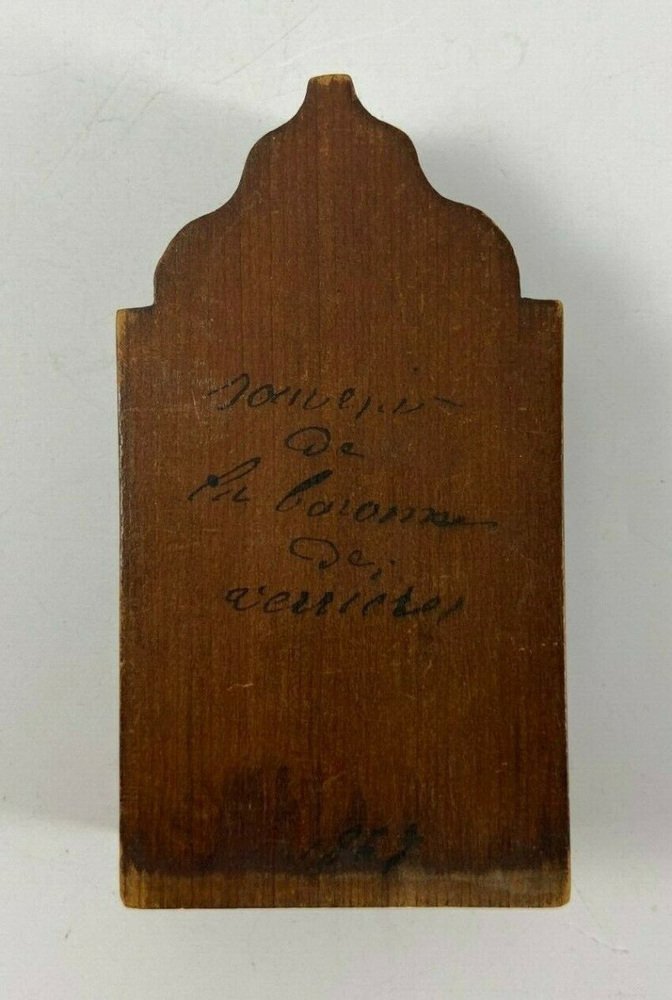 souvenir
de
la baronne
de
verrières
867